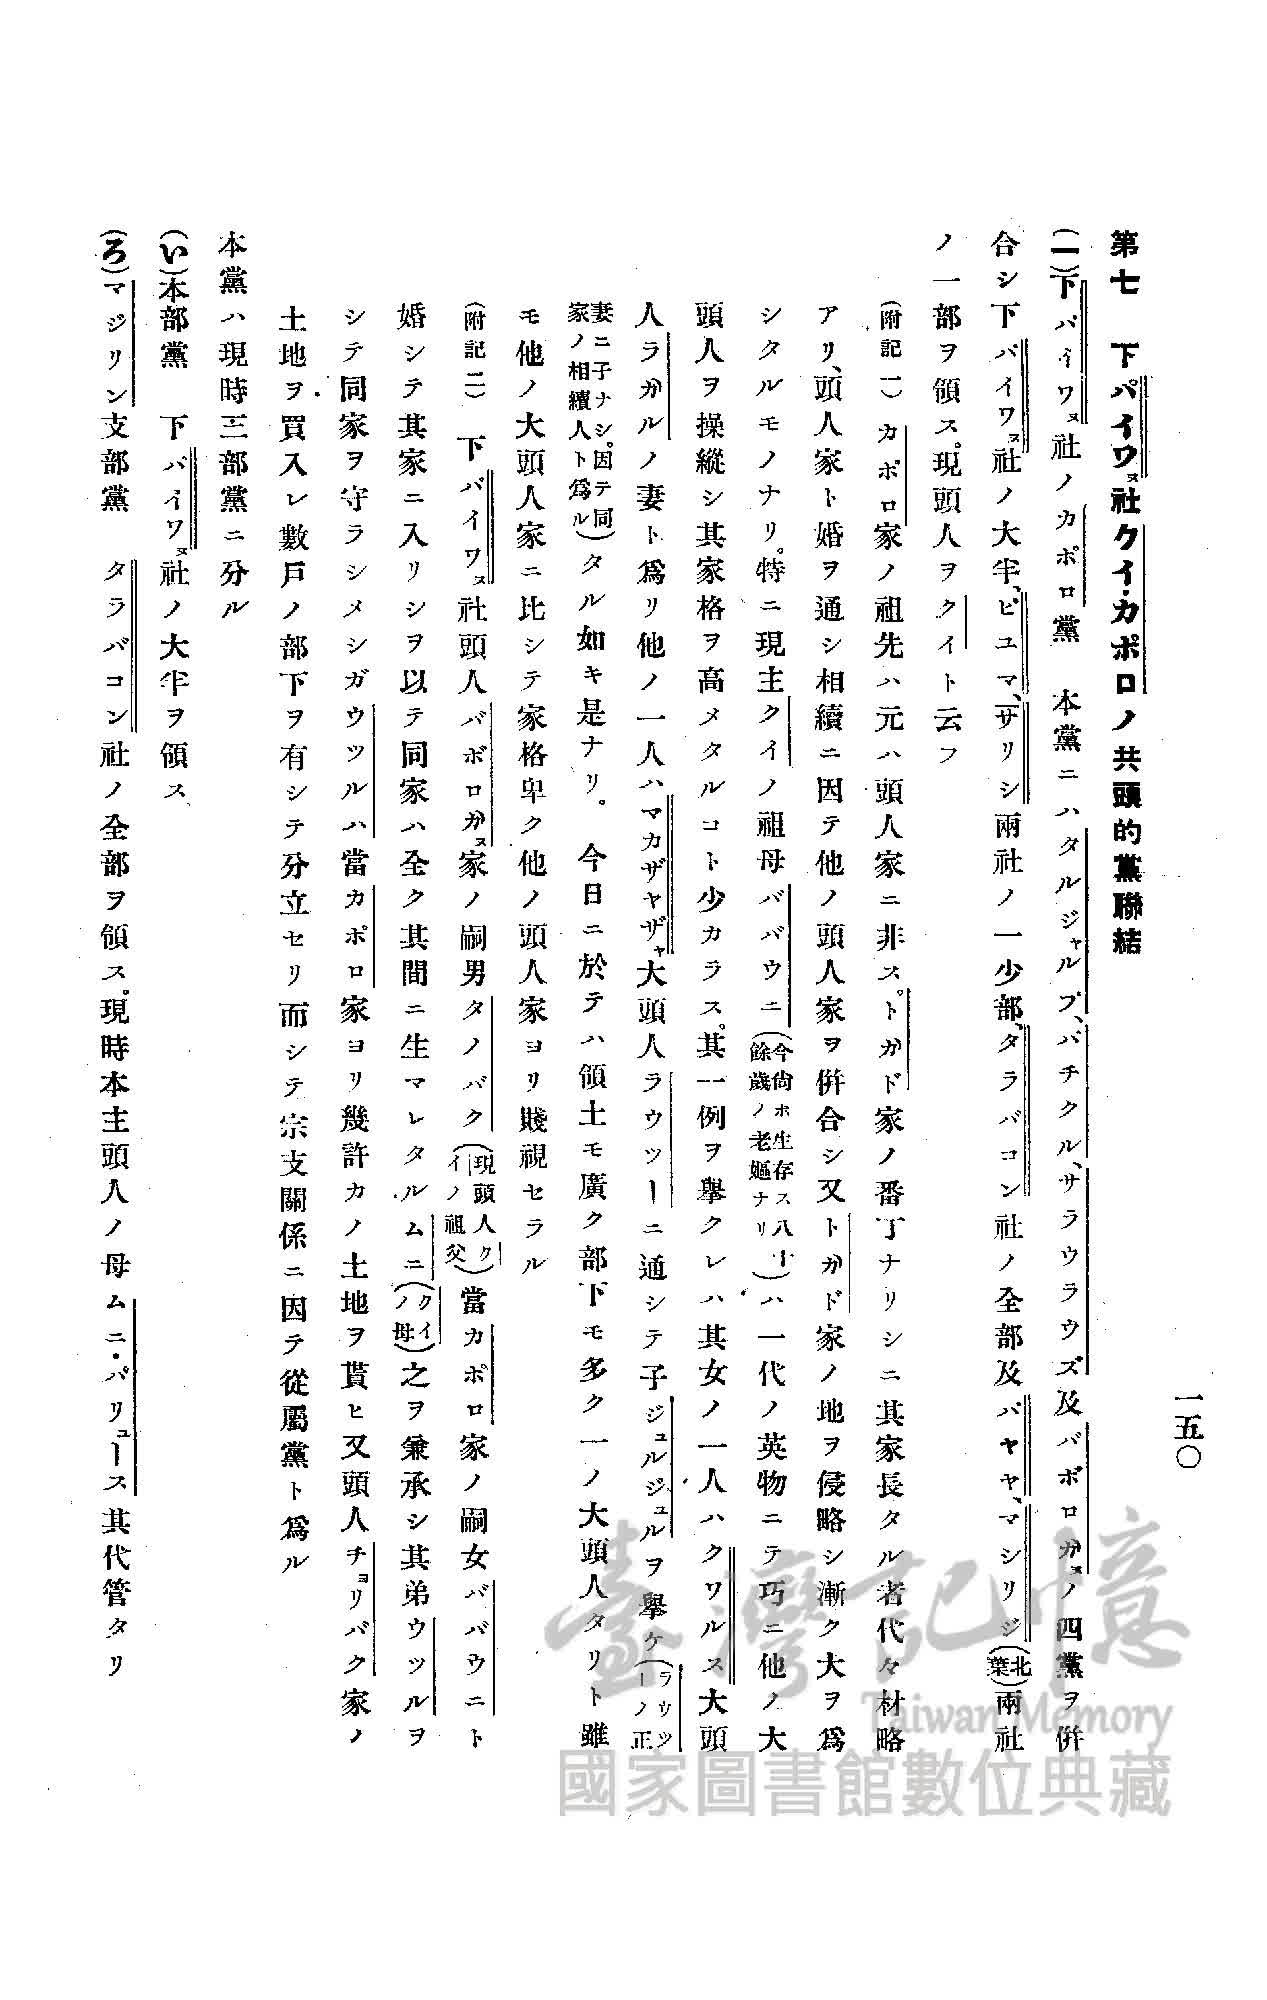 一五〇
第七　下パイワㇴ社クイ・カポロノ共頭的黨聯結
(一)下パイワㇴ社ノカポロ黨　本黨ニハタルジャルプ、パチクル、サラウラウズ及バボロガㇴノ四黨ヲ併
合シ下パイワㇴ社ノ大半、ピユマ、サリシ兩社ノ一少部、タラバコン社ノ全部及パヤヤ、マシリジ(北葉)兩社
ノ一部ヲ領ス。現頭人ヲクイト云フ
(附記一)　カポロ家ノ祖先ハ元ハ頭人家ニ非ス。トガド家ノ番丁ナリシニ其家長タル者代々材略
アリ、頭人家ト婚ヲ通シ相續ニ因テ他ノ頭人家ヲ併合シ又トガド家ノ地ヲ侵略シ漸ク大ヲ爲
シタルモノナリ。特ニ現主クイノ祖母バパウニ(今尙ホ生存ス八十餘歲ノ老嫗ナリ)ハ一代ノ英物ニテ巧ニ他ノ大
頭人ヲ操縱シ其家格ヲ高メタルコト少カラス。其一例ヲ擧クレハ其女ノ一人ハクワルス大頭
人ラガルノ妻ト爲リ他ノ一人ハマカザヤザャ大頭人ラウツーニ通シテ子ジュルジュルヲ擧ケ(ラウツーノ正
妻ニ子ナシ。因テ同家ノ相續人ト爲ル)タル如キ是ナリ。今日ニ於テハ領土モ廣ク部下モ多ク一ノ大頭人タリト雖
モ他ノ大頭人家ニ比シテ家格卑ク他ノ頭人家ヨリ賤視セラル
(附記二)　下パイワㇴ社頭人バボロガㇴ家ノ嗣男タノバク(現頭人クイノ祖父)當カポロ家ノ嗣女バパウニト
婚シテ其家ニ入リシヲ以テ同家ハ全ク其間ニ生マレタルムニ(クイノ母)之ヲ兼承シ其弟ウツルヲ
シテ同家ヲ守ラシメシガウツルハ當カポロ家ヨリ幾許カノ土地ヲ貰ヒ又頭人チョリバク家ノ
土地ヲ買入レ數戶ノ部下ヲ有シテ分立セリ而シテ宗支關係ニ因テ從屬黨ト爲ル
本黨ハ現時三部黨ニ分ル
(い)本部黨　下パイワㇴ社ノ大半ヲ領ス
(ろ)マジリン支部黨　タラバコン社ノ全部ヲ領ス。現時本主頭人ノ母ムニ・パリュース其代管タリ
臺灣記憶
Taiwan Memory
國家圖書館數位典藏